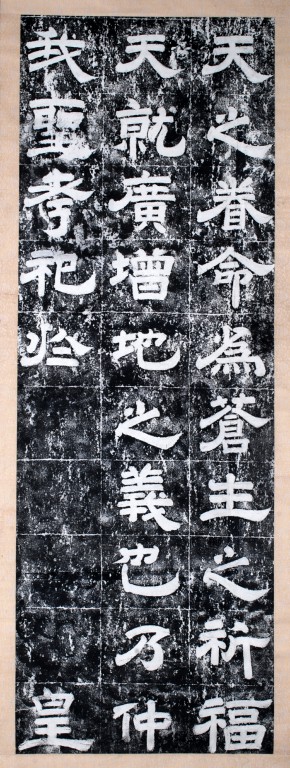 天之眷命為蒼生之祈福
天就廣增地之義也乃仲
我聖考祀於皇